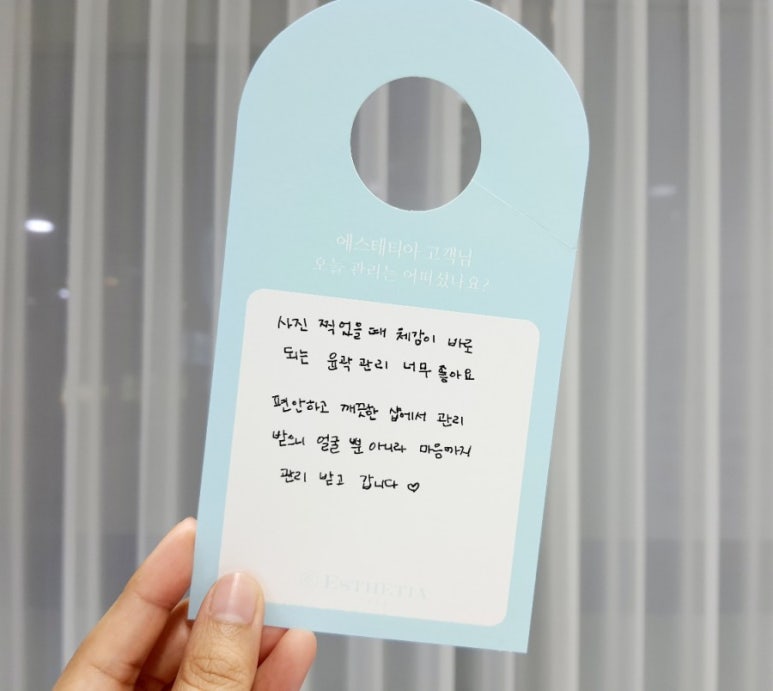 에스테티아 고객님
오늘 관리는 어떠셨나요?
사진 찍었을때 체감이 바로
되는 윤곽관리 너무 좋아요
편안하고 깨끗한 샵에서 관리
받으니 얼굴 뿐 아니라 마음까지
관리 받고 갑니다 ♡
ESTHETIA